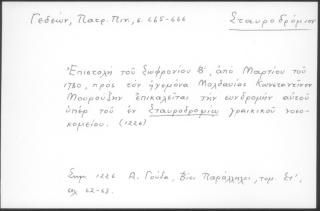 Γεδεών, Πατρ. Πιν., σ. 665-666
Σταυροδρόμιον
Ἐπιστολὴ τοῦ Σωφρονίου Β´, ἀπὸ Μαρτίου τοῦ
1780, πρὸς τὸν ἡγεμόνα Μολδαυίας Κωνσταντῖνον
Μουρούζην ἐπικαλεῖται τὴν συνδρομὴν αὐτοῦ
ὑπὲρ τοῦ ἐν Σταυροδρομίῳ γραικικοῦ νοσο-
κομείου. (1226)
Σημ. 1226 Α. Γούδα, Βίοι Παράλληλοι, τομ. Στ´,
σελ. 62-63.